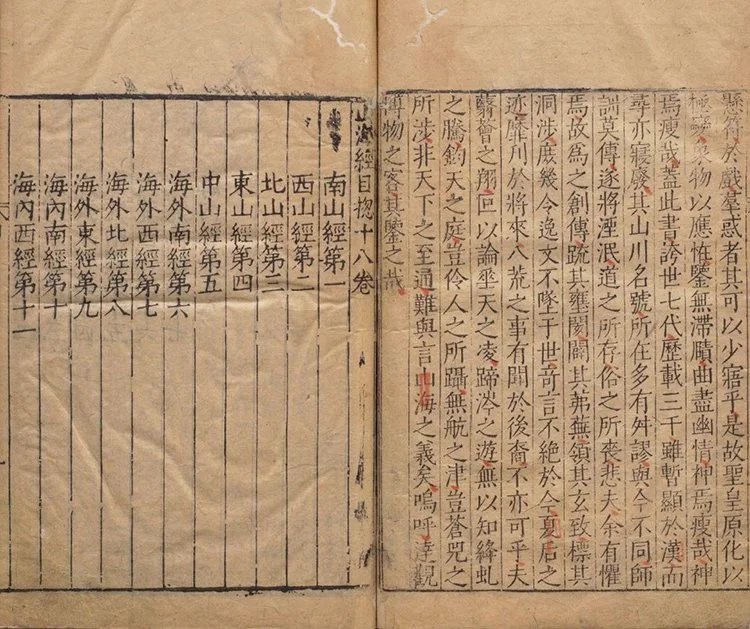 懸符於戲羣惑者其可以少寤乎是故聖皇原化以
極變象物以應怪鑒無滯賾曲盡幽情神焉瘦哉神
焉瘦哉蓋此書誇世七代歷載三千雖暫顯於漢而
尋亦寢廢其山川名號所在多有舛謬與今不同師
訓莫傳遂將湮泯道之所存俗之所喪悲夫余有懼
焉故爲之創傳疏其壅閡闢其茀蕪領其玄致標其
洞涉庶幾令逸文不墜于世奇言不絕於今夏后之
迹靡刋於將來八荒之事有聞於後裔不亦可乎夫
翳薈之翔叵以論埀天之凌蹄涔之遊無以知絳虬
之騰鈞天之庭豈伶人之所躡無航之津豈蒼兕之
所涉非天下之至通難與言山海之義矣嗚呼達觀
博物之客其鑒之哉
山海經目揔十八卷
南山經第一
西山經第二
北山經第三
東山經第四
中山經第五
海外南經第六
海外西經第七
海外北經第八
海外東經第九
海內南經第十
海內西經第十一